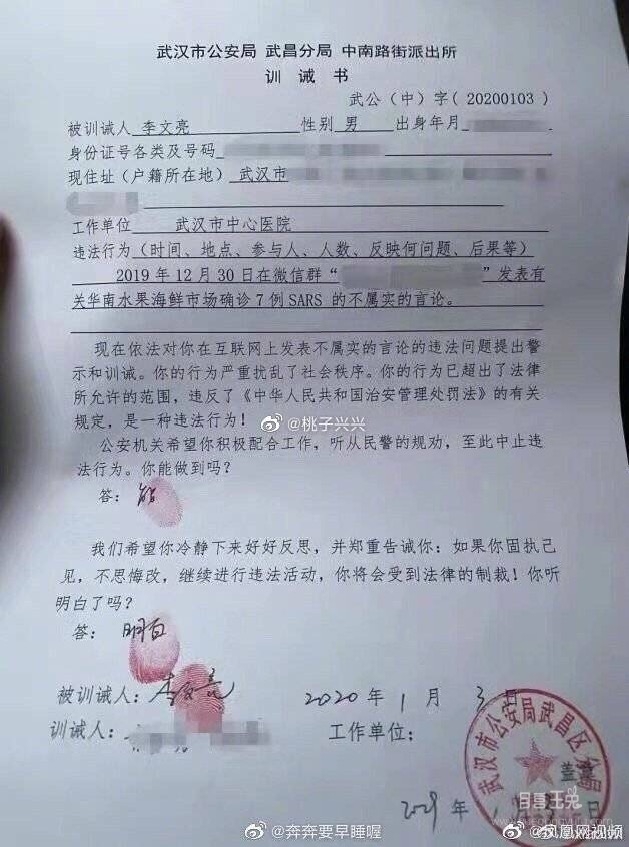 武汉市公安局 武昌分局 中南路街派出所
训 诫 书
武公（中）字（20200103）
被训诫人 李文亮 性别 男 出身年月
身份证号各类及号码
现住址（户籍所在地） 武汉市
工作单位 武汉市中心医院
违法行为（时间、地点、参与人、人数、反映何问题、后果等）
2019年12月30日在微信群“ ”发表有
关华南水果海鲜市场确诊7例SARS 的不属实的言论。
现在依法对你在互联网上发表不属实的言论的违法问题提出警
示和训诫。你的行为严重扰乱了社会秩序。你的行为已超出了法律
所允许的范围，违反了《中华人民共和国治安管理处罚法》的有关
规定，是一种违法行为！
@桃子兴兴
公安机关希望你积极配合工作，听从民警的规劝，至此中止违
法行为。你能做到吗？
答：能
我们希望你冷静下来好好反思，并郑重告诫你：如果你固执己
见，不思悔改，继续进行违法活动，你将会受到法律的制裁！你听
明白了吗？
答：明白
被训诫人：李文亮 2020年1月3日
训诫人： 工作单位：
武汉市公安局武昌区
盖章
年 日
@奔奔要早睡喔
@凤凰网视频